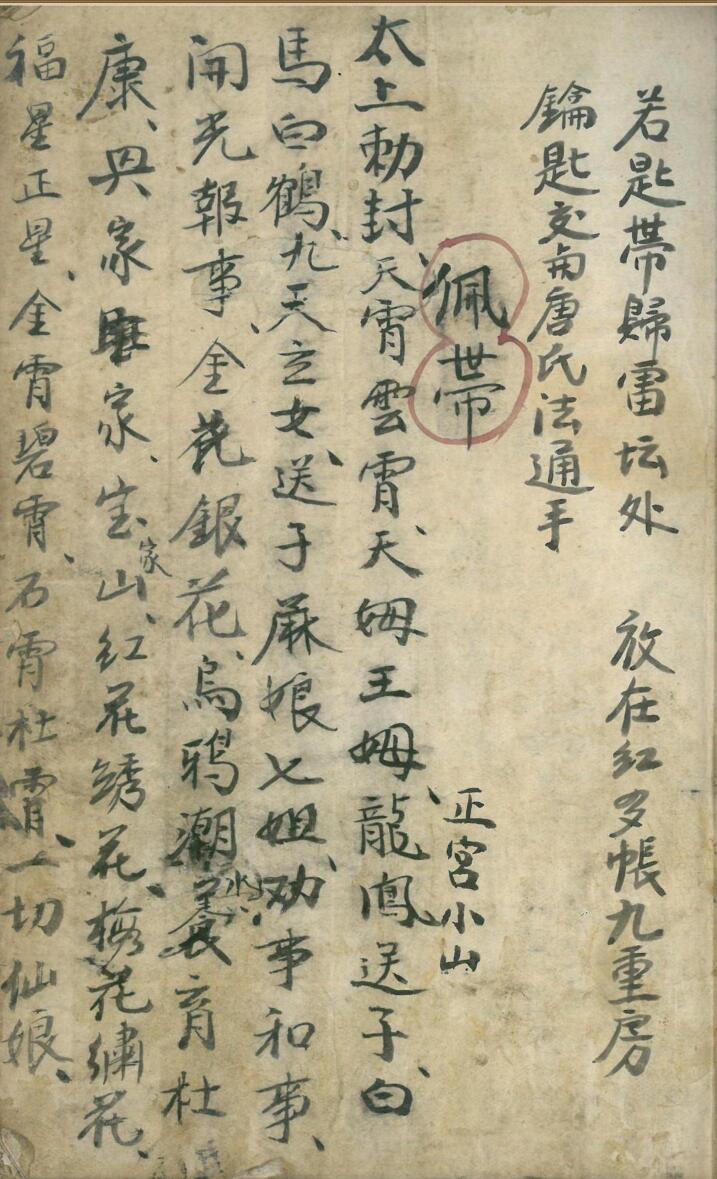 若匙帶歸雷坛处 放在红多帳九重房
鑰匙交与唐氏法通手
佩帶
正宮小山
太上勅封、天霄雲霄、天姆王姆、龍鳳送子、白
馬白鶴、九天玄女、送子麻娘七姐、劝事和事、
開光報事、金花銀花、烏鴉潮水、養育杜
康、興家旺家、宝家山、红花綉花、梅花繡花、
福星正星、金霄碧霄、石霄杜霄、一切仙娘、